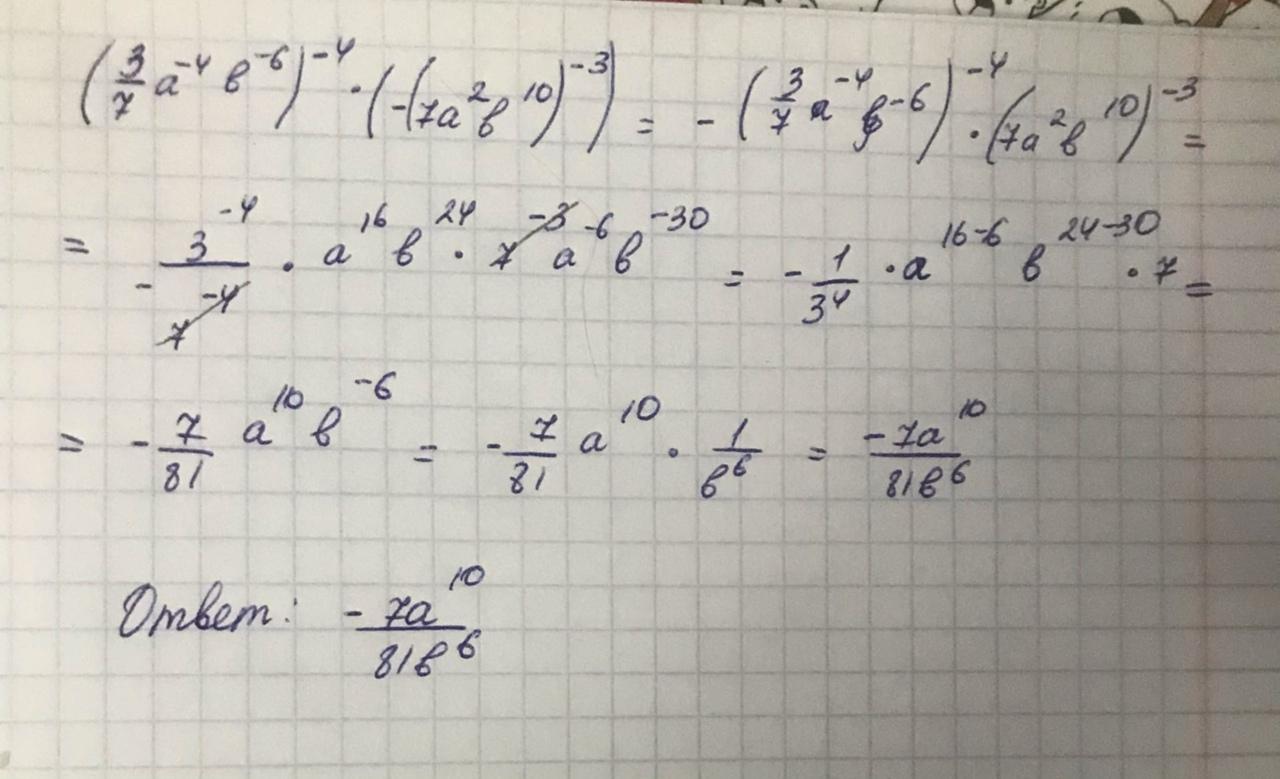 (3/7 a⁻⁴ b⁻⁶)⁻⁴ · (-(7a²b¹⁰)⁻³) = - (3/7 a⁻⁴ b⁻⁶)⁻⁴ · (7a²b¹⁰)⁻³ =
= - 3⁻⁴/7⁻⁴ · a¹⁶ b²⁴ · 7⁻³ a⁻⁶ b⁻³⁰ = - 1/3⁴ · a¹⁶⁻⁶ b²⁴⁻³⁰ · 7 =
= - 7/81 a¹⁰ b⁻⁶ = - 7/81 a¹⁰ · 1/b⁶ = -7a¹⁰/81b⁶
Ответ: - 7a¹⁰/81b⁶